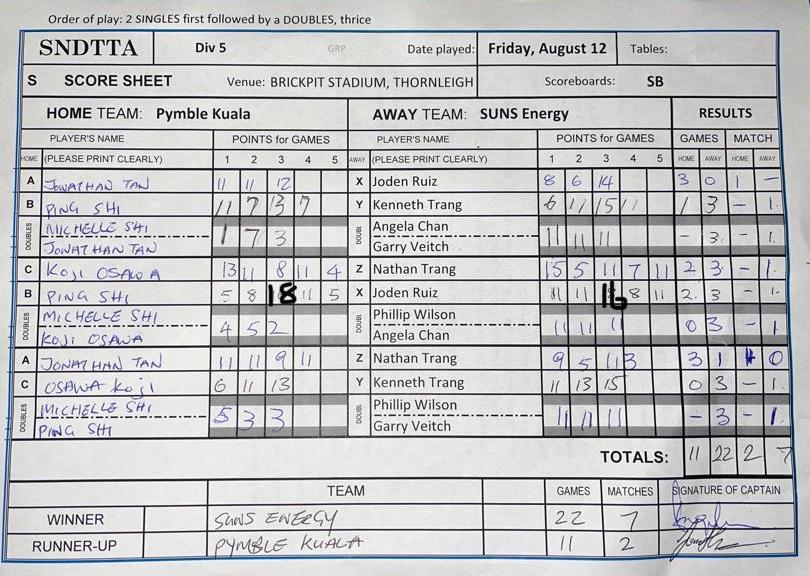 Order of play: 2 SINGLES first followed by a DOUBLES, thrice
SNDTTA Div 5 GRP Date played: Friday, August 12 Tables:
S SCORE SHEET Venue: BRICKPIT STADIUM, THORNLEIGH Scoreboards: SB
HOME TEAM: Pymble Kuala AWAY TEAM: SUNS Energy RESULTS
PLAYER'S NAME POINTS for GAMES PLAYER'S NAME POINTS for GAMES GAMES MATCH
HOME (PLEASE PRINT CLEARLY) 1 2 3 4 5 AWAY (PLEASE PRINT CLEARLY) 1 2 3 4 5 HOME AWAY HOME AWAY
A JONATHAN TAN 11 11 12 X Joden Ruiz 8 6 14 3 0 1 -
B PING SHI 11 7 13 7 Y Kenneth Trang 6 11 15 11 1 3 - 1
DOUBLES MICHELLE SHI 1 7 3 DOUBL Angela Chan 11 11 11 - 3 - 1
JONATHAN TAN Garry Veitch
C KOJI OSAWA 13 11 8 11 4 Z Nathan Trang 15 5 11 7 11 2 3 - 1
B PING SHI 5 8 18 11 5 X Joden Ruiz 11 11 16 8 11 2 3 - 1
DOUBLES MICHELLE SHI 4 5 2 DOUBL Phillip Wilson 11 11 11 0 3 - 1
KOJI OSAWA Angela Chan
A JONATHAN TAN 11 11 9 11 Z Nathan Trang 9 5 11 3 3 1 0
C OSAWA KOJI 6 11 13 Y Kenneth Trang 11 13 15 0 3 - 1
DOUBLES MICHELLE SHI 5 3 3 DOUBL Phillip Wilson 11 11 11 - 3 - 1
PING SHI Garry Veitch
TOTALS: 11 22 2 7
TEAM GAMES MATCHES SIGNATURE OF CAPTAIN
WINNER SUNS ENERGY 22 7
RUNNER-UP PYMBLE KUALA 11 2